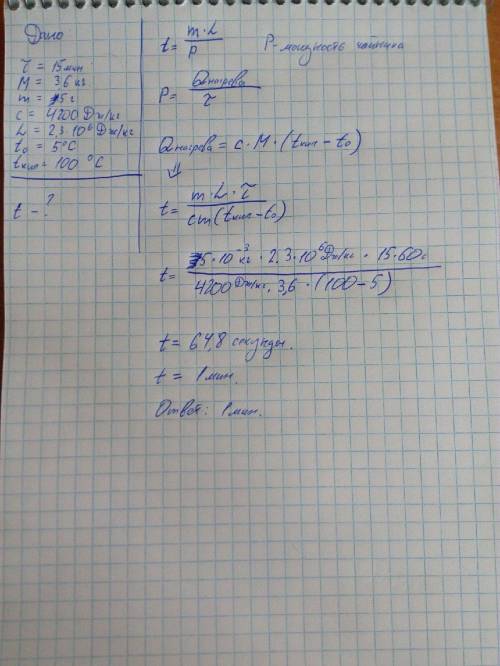 Дано
τ = 15 мин
M = 3,6 кг
m = 45 г
c = 4200 Дж/кг
L = 2,3·10⁶ Дж/кг
t₀ = 5°C
tкип = 100 °C
t - ?
t = m·L / P P - мощность чайника
P = Qнагрева / τ
Qнагрева = c·M·(tкип - t₀)
⇓
t = m·L·τ / cm(tкип - t₀)
t = 5·10⁻³ кг · 2,3·10⁶ Дж/кг · 15·60с / 4200 Дж/кг · 3,6 · (100 - 5)
t = 64,8 секунды.
t = 1 мин.
Ответ: 1 мин.